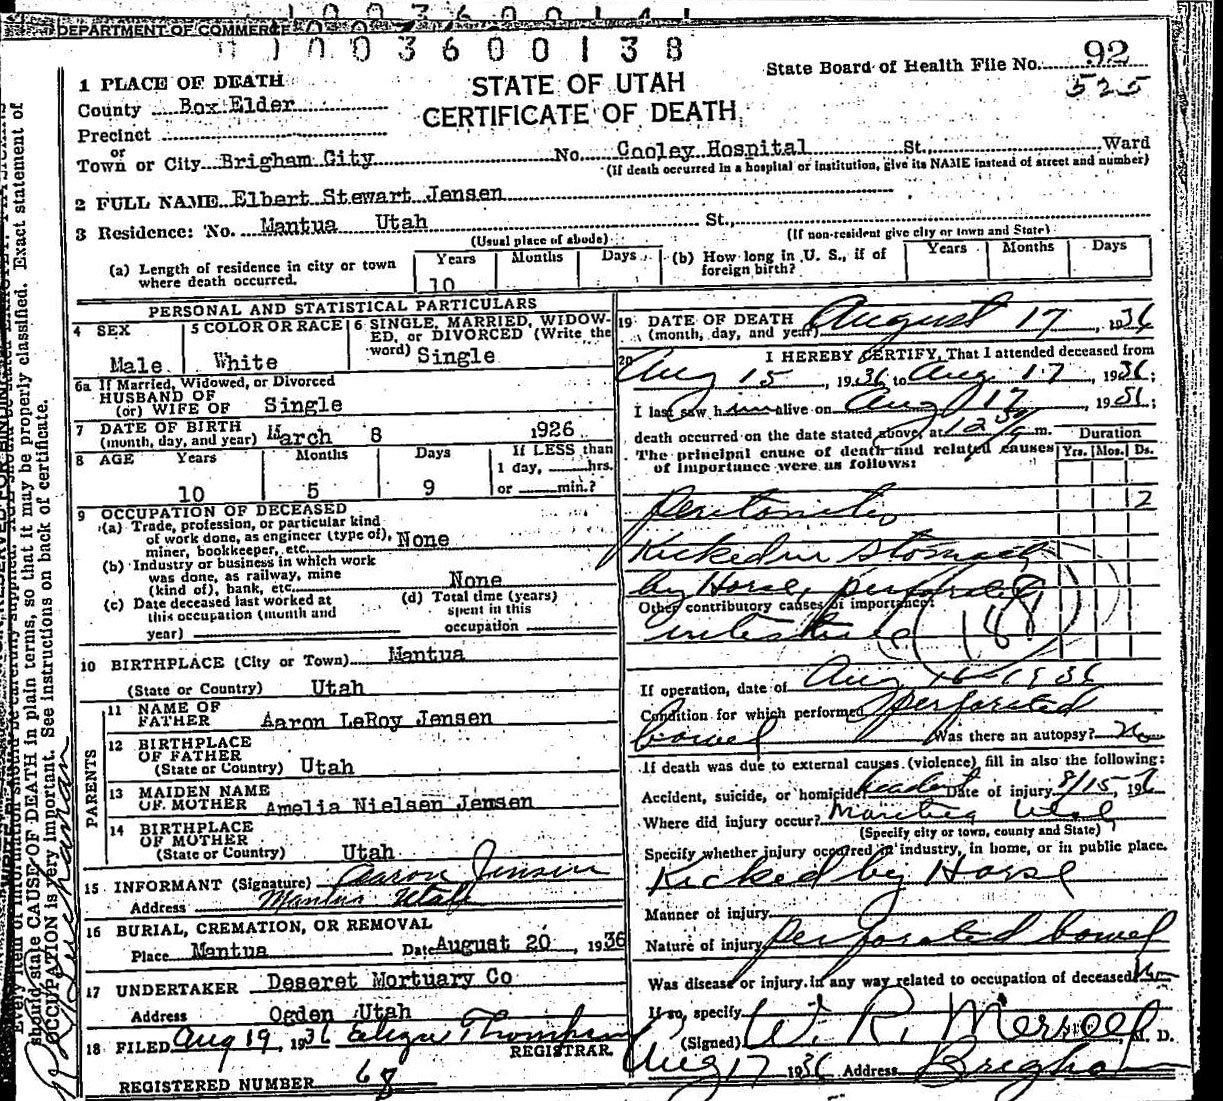 DEPARTMENT OF COMMERCE
1003600138
STATE OF UTAH
CERTIFICATE OF DEATH
State Board of Health File No. 92
525
1 PLACE OF DEATH
County Box Elder
Precinct
or
Town or City Brigham City No. Cooley Hospital St., Ward
(If death occurred in a hospital or institution, give its NAME instead of street and number)
2 FULL NAME Elbert Stewart Jensen
3 Residence: No. Mantua Utah St.,
(Usual place of abode) (If non-resident give city or town and State)
(a) Length of residence in city or town where death occurred. Years 10 Months Days
(b) How long in U. S., if of foreign birth? Years Months Days
PERSONAL AND STATISTICAL PARTICULARS
4 SEX Male
5 COLOR OR RACE White
6 SINGLE, MARRIED, WIDOWED, or DIVORCED (Write the word) Single
6a If Married, Widowed, or Divorced
HUSBAND OF
(or) WIFE OF Single
7 DATE OF BIRTH
(month, day, and year) March 8 1926
8 AGE Years Months Days If LESS than
1 day, hrs.
10 5 9 or min.?
9 OCCUPATION OF DECEASED
(a) Trade, profession, or particular kind
of work done, as engineer (type of),
miner, bookkeeper, etc. None
(b) Industry or business in which work
was done, as railway, mine
(kind of), bank, etc. None
(c) Date deceased last worked at
this occupation (month and
year)
(d) Total time (years)
spent in this
occupation
10 BIRTHPLACE (City or Town) Mantua
(State or Country) Utah
PARENTS
11 NAME OF
FATHER Aaron LeRoy Jensen
12 BIRTHPLACE
OF FATHER
(State or Country) Utah
13 MAIDEN NAME
OF MOTHER Amelia Nielsen Jensen
14 BIRTHPLACE
OF MOTHER
(State or Country) Utah
15 INFORMANT (Signature) Aaron Jensen
Address Mantua Utah
16 BURIAL, CREMATION, OR REMOVAL
Place Mantua Date August 20, 1936
17 UNDERTAKER Deseret Mortuary Co
Address Ogden Utah
18 FILED Aug 19, 1936 Thompson
REGISTRAR.
REGISTERED NUMBER 68
19 DATE OF DEATH
(month, day, and year) August 17, 1936
20 I HEREBY CERTIFY, That I attended deceased from
Aug 15, 1936 to Aug 17, 1936;
I last saw him alive on Aug 17, 1936;
death occurred on the date stated above, at 12 m.
The principal cause of death and related causes
of importance were as follows:
Duration
Yrs. Mos. Ds.
Peritonitis 2
Kicked in stomach
by Horse, perforated
Other contributory causes of importance:
intestine (188)
If operation, date of Aug 16 1936
Condition for which performed perforated
bowel Was there an autopsy? No
If death was due to external causes (violence) fill in also the following:
Accident, suicide, or homicide? Date of injury 8/15, 1936
Where did injury occur? Mantua Utah
(Specify city or town, county and State)
Specify whether injury occurred in industry, in home, or in public place.
Kicked by Horse
Manner of injury
Nature of injury perforated bowel
Was disease or injury in any way related to occupation of deceased? No
If so, specify
(Signed) W. R. Merrell, M. D.
Aug 17 1936 Address Brigham
should state CAUSE OF DEATH in plain terms, so that it may be properly classified. Exact statement of
OCCUPATION is very important. See instructions on back of certificate.